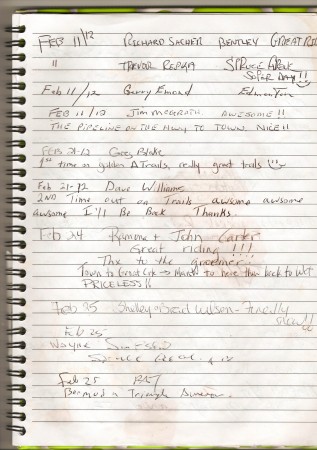 FEB 11/12 RICHARD SACHER BENTLEY GREAT RIDE
" TREVOR REPKA SPRUCE GROVE
SUPER DAY!!
Feb 11/12 Gerry Edmonton
FEB 11/12 JIM McGRATH AWESOME!!
THE PIPELINE ON THE HWY TO TOWN. NICE!!
FEB 21-12 Greg Blake
1st time on golden A Trails, really great trails
Feb 21-12 Dave Williams
2ND Time out on Trails awsome awsome
awsome I'll Be Back Thanks
Feb 24 Ramona + John Carter
Great riding!!!
Thx to the groomer!
Town to Great → to here then back to
PRICELESS!!
Feb 25 Shelley + Brad Wilson - Finally
Feb 25
WAYNE
SPRUCE GROVE
Feb 25
Bermuda Triangle